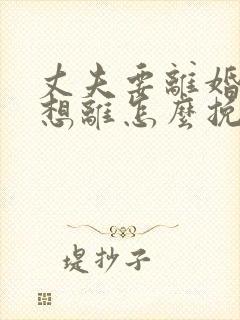 丈夫要離婚
想離怎麼挽
堤抄子